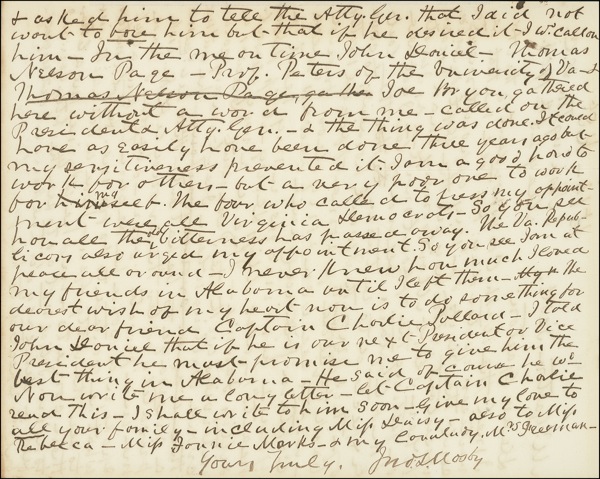 & asked him to tell the Atty. Gen. that I did not
want to bore him but that if he desired it I wd. call on
him – In the mean time John Daniel – Thomas
Nelson Page – Prof. Peters of the University of Va – &
Thomas Nelson Page gathe Joe Bryan, gathered
here without a word from me – called on the
President & Atty. Gen. – & the thing was done. It could
have as easily have been done three years ago but
my sensitiveness prevented it. I am a good hand to
work for others – but a very poor one to work
for himself. The four who called to press my appoint-
ment were all Virginia Democrats – So you see
how all the bitterness has passed away. The Va. Repub-
licans also urged my appointment. So you see I am at
peace all around – I never knew how much I loved
my friends in Alabama until I left them – The
dearest wish of my heart now is to do something for
our dear friend Captain Charlie Pollard – I told
John Daniel that if he is our next President or Vice
President he must promise me to give him the
best thing in Alabama – He said of course he wd
Now write me a long letter – let Captain Charlie
read this – I shall write to him soon – Give my love to
all your family – including Miss – also to Miss
Rebecca – Miss Fannie Marks – & my Mrs. Freeman –
Yours Truly, Jno. S. Mosby